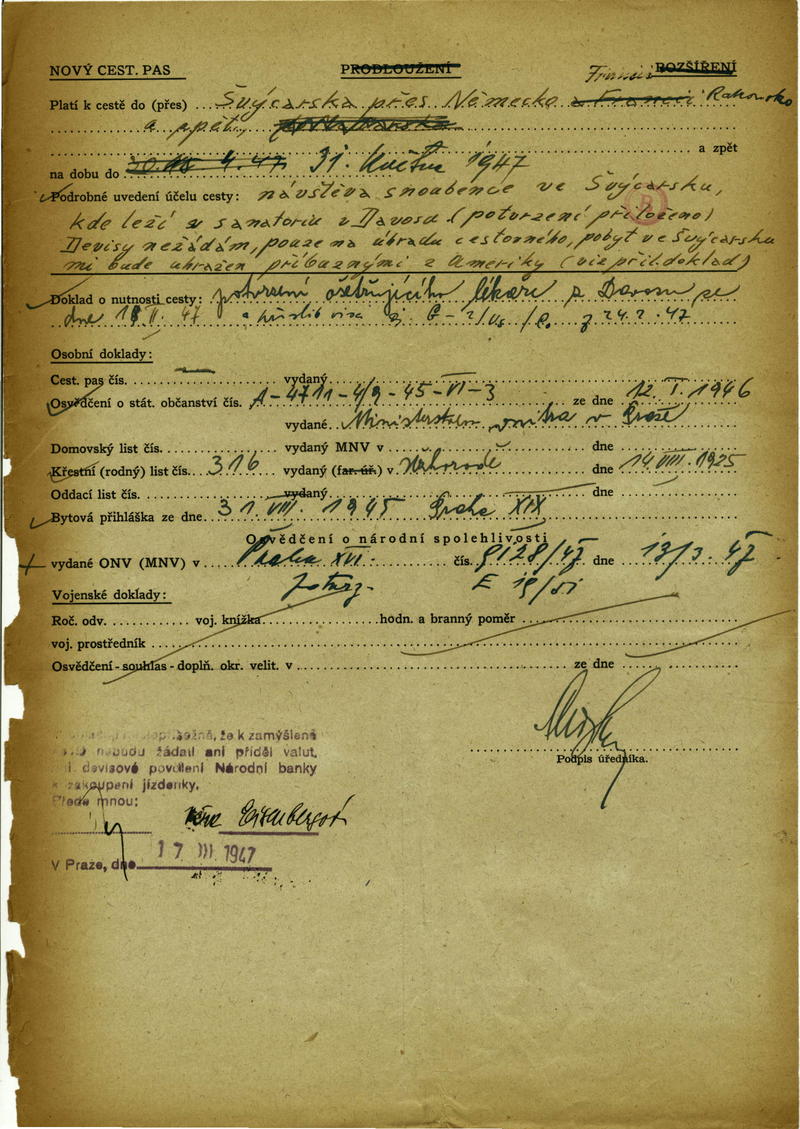 NOVÝ CEST. PAS PRODLOUŽENÍ ROZŠÍŘENÍ
Francii
Platí k cestě do (přes) Švýcarska přes Německo a Francii Rakousko
a zpět,
a zpět
na dobu do 4.47 31. května 1947
Podrobné uvedení účelu cesty: návštěva snoubence ve Švýcarsku,
kde leží v sanatoriu v Davosu (potvrzení přiloženo)
Devisy nežádám, pouze na úhradu cestovného, pobyt ve Švýcarsku
mi bude uhražen příbuznými z Ameriky (viz příl. doklad)
Doklad o nutnosti cesty: potvrzení ošetřujícího lékaře z Davosu ze
dne 18 II. 47 a příslib visa z 24.2.47
Osobní doklady:
Cest. pas čís. vydaný
Osvědčení o stát. občanství čís. A-4711-4/9-45-VI-3 ze dne 12. I. 1946
vydané Ministerstvem vnitra v Praze
Domovský list čís. vydaný MNV v dne
Křestní (rodný) list čís. 316 vydaný (far. úř.) v Užhorodě dne 14 VIII. 1925
Oddací list čís. vydaný dne
Bytová přihláška ze dne 31. VIII. 1945 Praha XIX
Osvědčení o národní spolehlivosti
vydané ONV (MNV) v Praha XVI. čís. 9128/47 dne 13/3. 47
Vojenské doklady:
Roč. odv. voj. knížka hodn. a branný poměr
voj. prostředník
Osvědčení - souhlas - doplň. okr. velit. v ze dne
že k zamýšlené
nebudu žádati ani příděl valut,
devisové povolení Národní banky
zakoupení jízdenky.
Přede mnou:
Podpis úředníka.
Eisenbergová
V Praze, dne 17 III. 1947